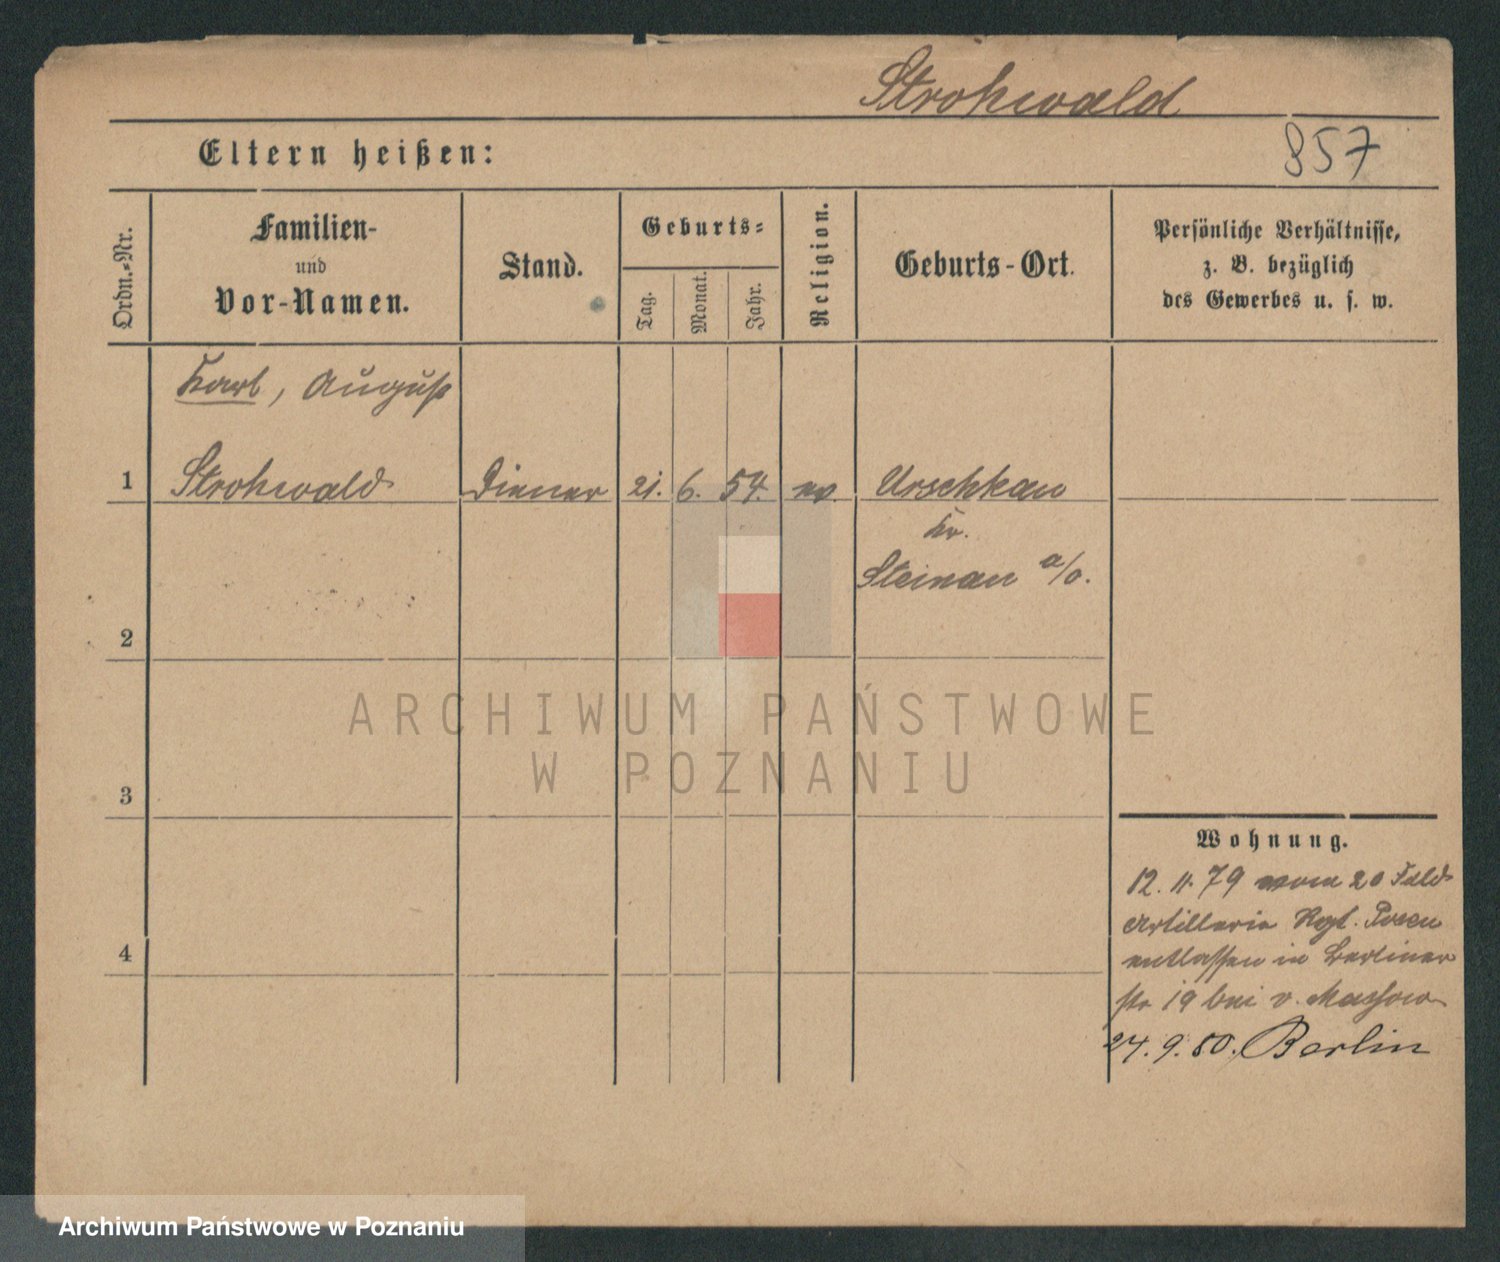 Strohwald
Eltern heißen:
857
Ordn.-Nr.
Familien-
und
Vor-Namen.
Stand.
Geburts-
Tag.
Monat.
Jahr.
Religion.
Geburts-Ort.
Persönliche Verhältnisse,
z. B. bezüglich
des Gewerbes u. s. w.
Karl, August
1 Strohwald Diener 21. 6. 54. ev. Urschkau
Kr.
Steinau a/o.
2
3
4
Wohnung.
12. 11. 79 vom 20 Feld
Artillerie Rgt. Posen
entlassen in Berliner
str 19 bei v. Massow
24. 9. 80. Berlin
ARCHIWUM PAŃSTWOWE
W POZNANIU
Archiwum Państwowe w Poznaniu